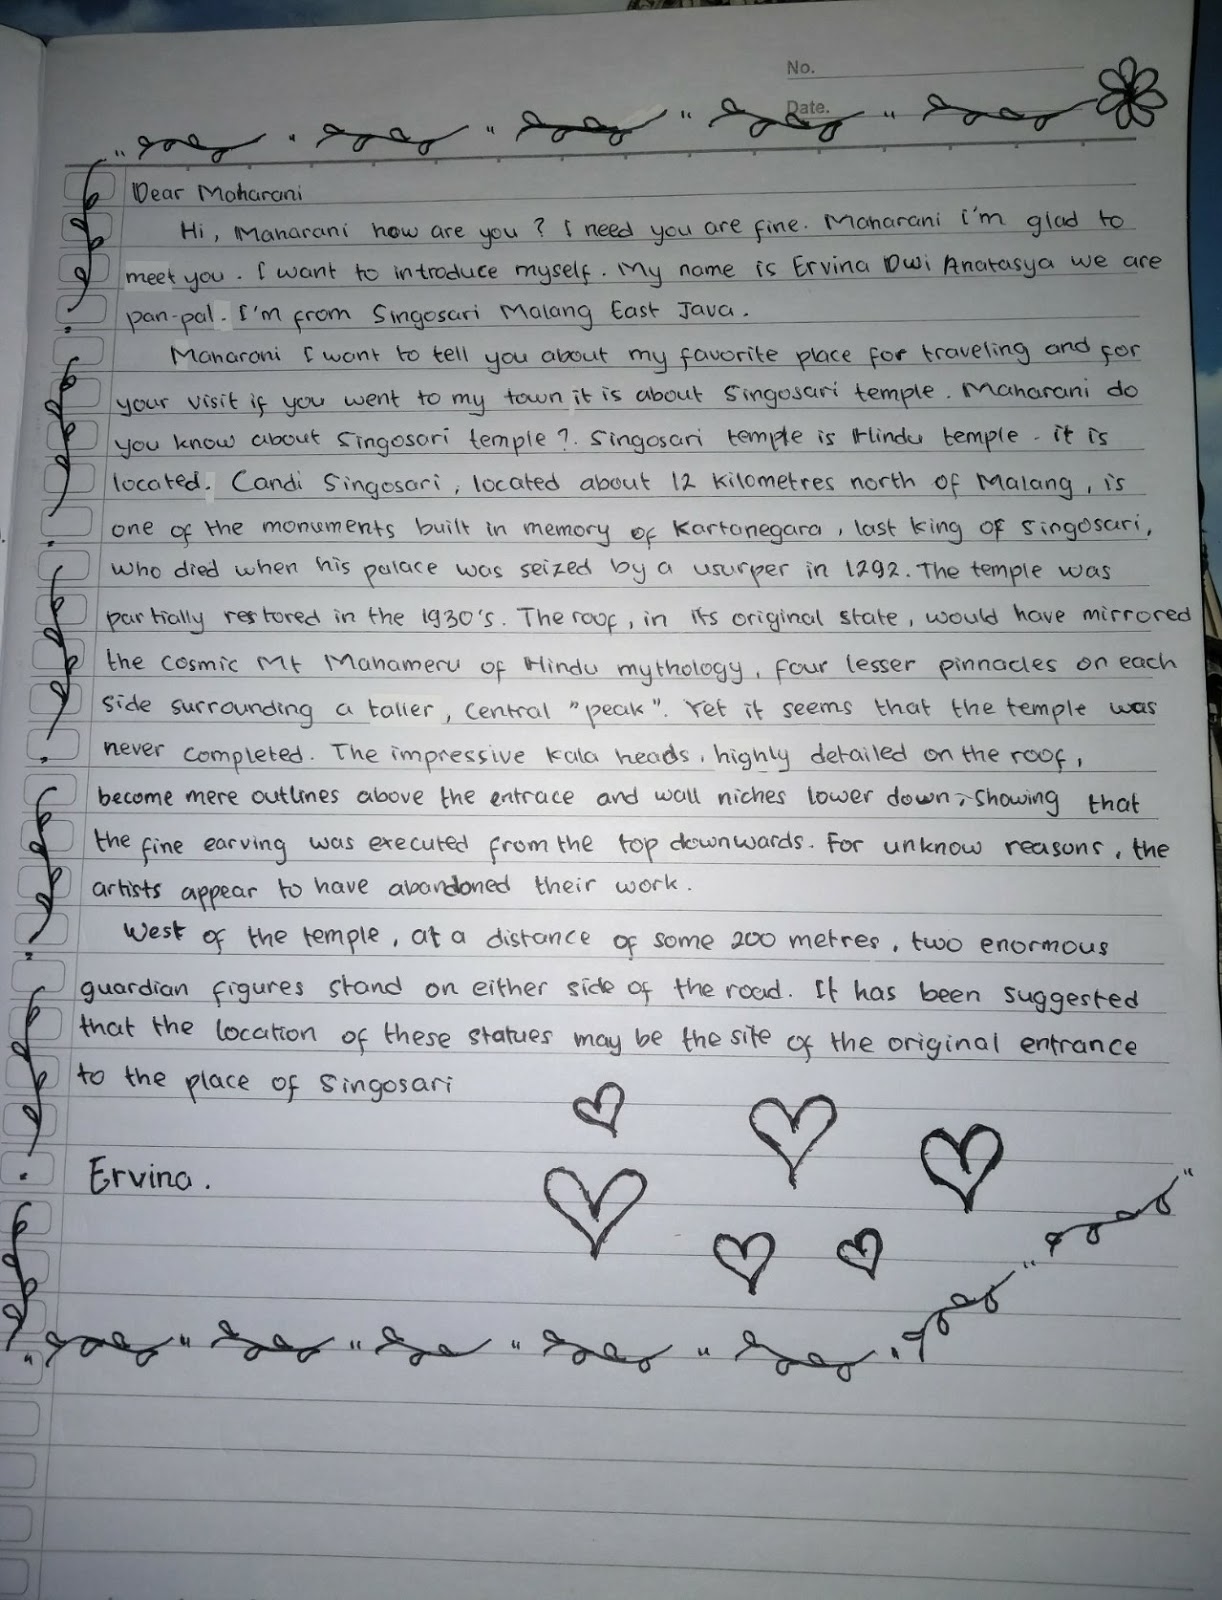 No.
Date.
Dear Maharani
Hi, Maharani how are you? I need you are fine. Maharani i'm glad to
meet you. I want to introduce myself. My name is Ervina Dwi Anatasya we are
pan-pal. I'm from Singosari Malang East Java.
Maharani I want to tell you about my favorite place for traveling and for
your visit if you went to my town it is about Singosari temple. Maharani do
you know about Singosari temple?. Singosari temple is Hindu temple. it is
located. Candi Singosari, located about 12 kilometres north of Malang, is
one of the monuments built in memory of Kartanegara, last king of Singosari,
who died when his palace was seized by a usurper in 1292. The temple was
partially restored in the 1930's. The roof, in its original state, would have mirrored
the cosmic Mt Mahameru of Hindu mythology, four lesser pinnacles on each
side surrounding a taller, central "peak". Yet it seems that the temple was
never completed. The impressive kala heads, highly detailed on the roof,
become mere outlines above the entrace and wall niches lower down, showing that
the fine earving was executed from the top downwards. For unknow reasons, the
artists appear to have abandoned their work.
West of the temple, at a distance of some 200 metres, two enormous
guardian figures stand on either side of the road. It has been suggested
that the location of these statues may be the site of the original entrance
to the place of Singosari
Ervina.